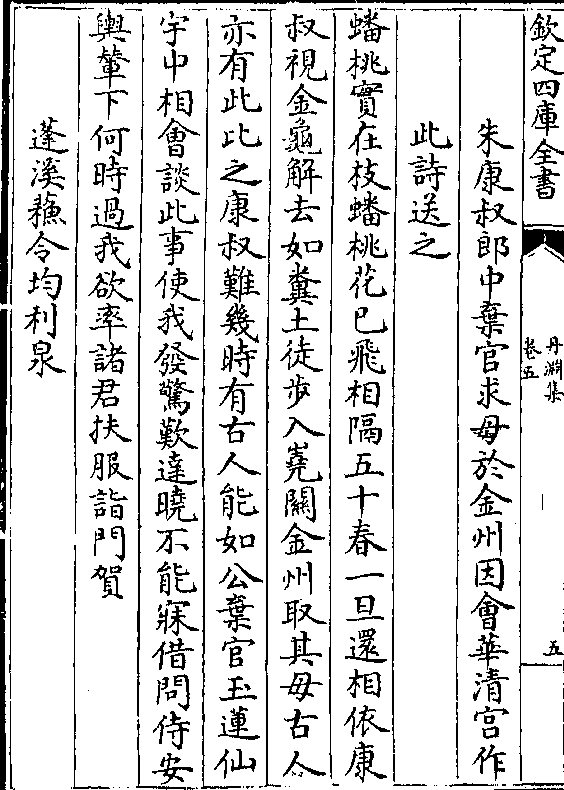 欽定四庫全書
丹淵集
卷五
五
朱康叔郎中棄官求母於金州因會華清宮作
此詩送之
蟠桃實在枝蟠桃花已飛相隔五十春一旦還相依康
叔視金龜解去如糞土徒步入嶢關金州取其母古人
亦有此比之康叔難幾時有古人能如公棄官玉蓮仙
宇中相會談此事使我發驚歎達曉不能寐借問侍安
輿輦下何時過我欲率諸君扶服詣門賀
蓬溪蘓令均利泉